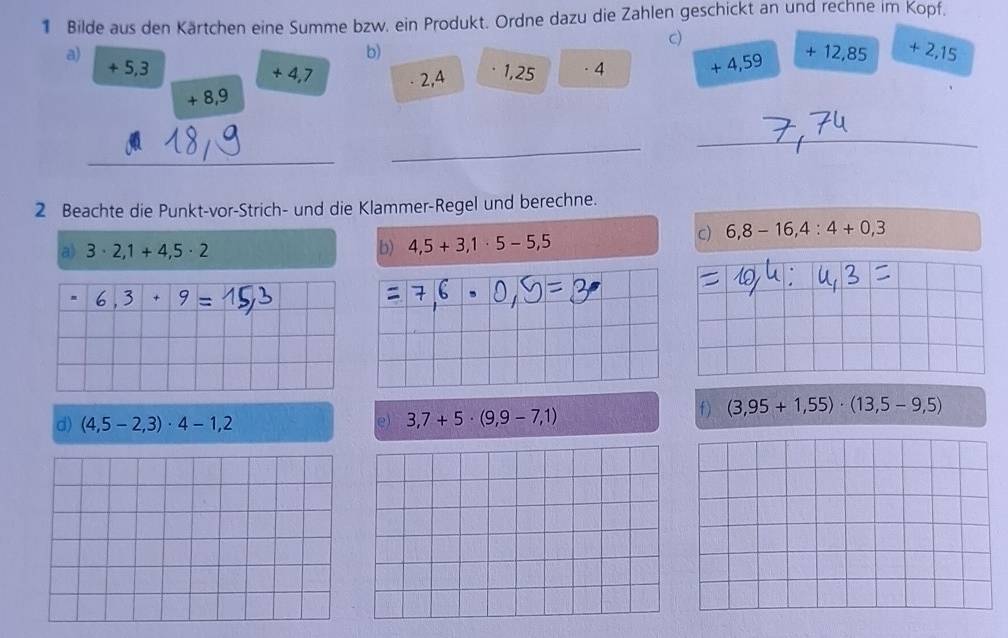 1 Bilde aus den Kärtchen eine Summe bzw. ein Produkt. Ordne dazu die Zahlen geschickt an und rechne im Kopf.
a) + 5,3 + 8,9 + 4,7
b) · 2,4 · 1,25 · 4
c) + 4,59 + 12,85 + 2,15
18,9
7,74
2 Beachte die Punkt-vor-Strich- und die Klammer-Regel und berechne.
a) 3 · 2,1 + 4,5 · 2
b) 4,5 + 3,1 · 5 – 5,5
c) 6,8 – 16,4 : 4 + 0,3
= 6,3 + 9 = 15,3
= 7,6 · 0,5 = 3
= 10,4 : 4,3 =
d) (4,5 – 2,3) · 4 – 1,2
e) 3,7 + 5 · (9,9 – 7,1)
f) (3,95 + 1,55) · (13,5 – 9,5)